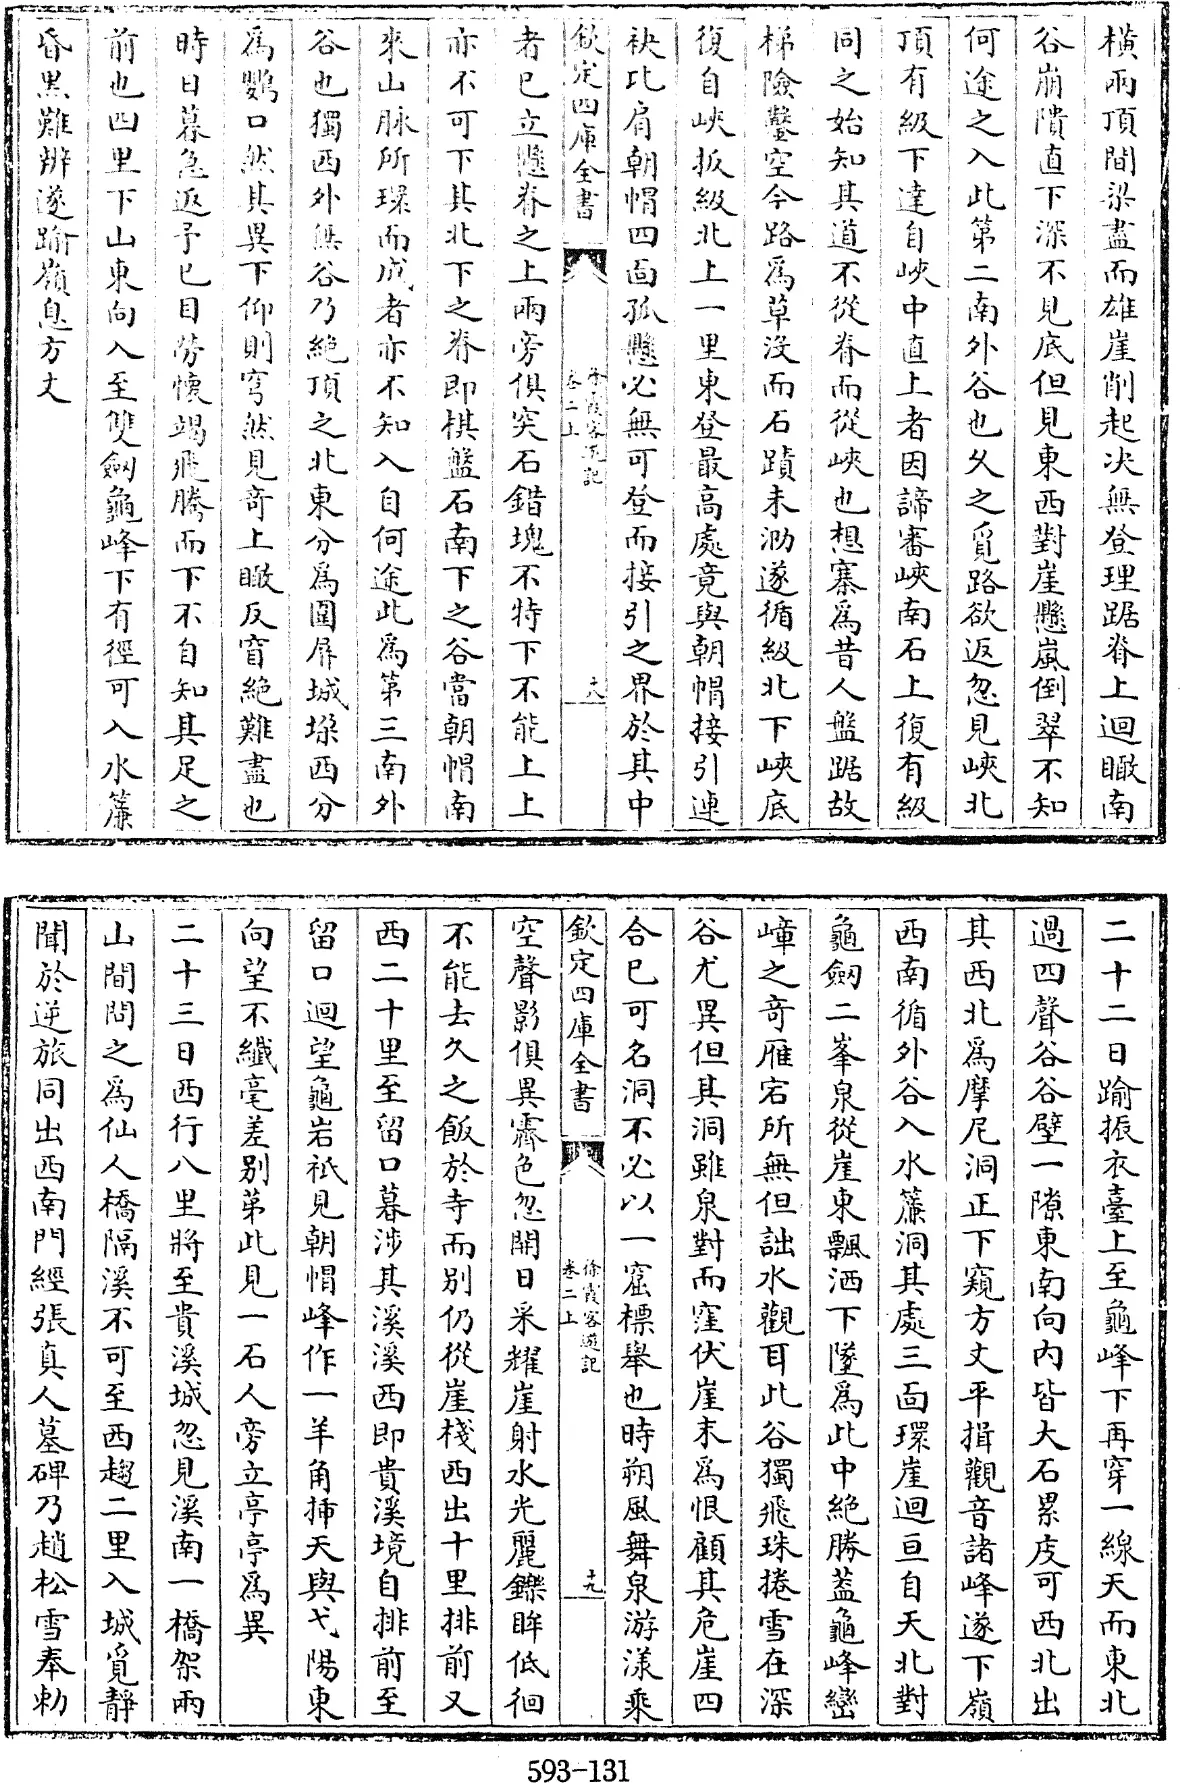 橫兩頂間梁盡而雄崖削起决無登理踞脊上迴瞰南
谷崩隤直下深不見底但見東西對崖懸嵐倒翠不知
何途之入此第二南外谷也久之覓路欲返忽見峽北
頂有級下達自峽中直上者因諦審峽南石上復有級
同之始知其道不從脊而從峽也想寨爲昔人盤踞故
梯險鑿空今路爲草沒而石蹟未泐遂循級北下峽底
復自峽扳級北上一里東登最高處竟與朝帽接引連
袂比肩朝帽四面孤懸必無可登而接引之界於其中
欽定四庫全書
徐霞客遊記
卷二上
十八
者已立懸脊之上兩旁俱突石錯塊不特下不能上上
亦不可下其北下之脊即棋盤石南下之谷當朝帽南
來山脉所環而成者亦不知入自何途此爲第三南外
谷也獨西外無谷乃絶頂之北東分爲圍屏城垜西分
爲鸚口然其異下仰則穹然見奇上瞰反窅絶難盡也
時日暮急返予已目勞懷竭飛騰而下不自知其足之
前也四里下山東向入至雙劒龜峰下有徑可入水簾
昏黑難辨遂踰嶺息方丈
二十二日踰振衣臺上至龜峰下再穿一線天而東北
過四聲谷谷壁一隙東南向内皆大石累庋可西北出
其西北爲摩尼洞正下窺方丈平揖觀音諸峰遂下嶺
西南循外谷入水簾洞其處三面環崖迴亘自天北對
龜劒二峯泉從崖東飄洒下墜爲此中絶勝葢龜峰巒
嶂之奇雁宕所無但詘水觀耳此谷獨飛珠捲雪在深
谷尤異但其洞雖泉對而窪伏崖末爲恨顧其危崖四
合已可名洞不必以一窟標舉也時朔風舞泉游漾乘
欽定四庫全書
徐霞客遊記
卷二上
十九
空聲影俱異霽色忽開日采耀崖射水光麗鑠眸低徊
不能去久之飯於寺而别仍從崖棧西出十里排前又
西二十里至留口暮涉其溪溪西即貴溪境自排前至
留口迴望龜岩祗見朝帽峰作一羊角揷天與弋陽東
向望不纎毫差别第此見一石人旁立亭亭爲異
二十三日西行八里將至貴溪城忽見溪南一橋架兩
山間問之爲仙人橋隔溪不可至西趨二里入城覓靜
聞於逆旅同出西南門經張真人墓碑乃趙松雪奉勅
593-131